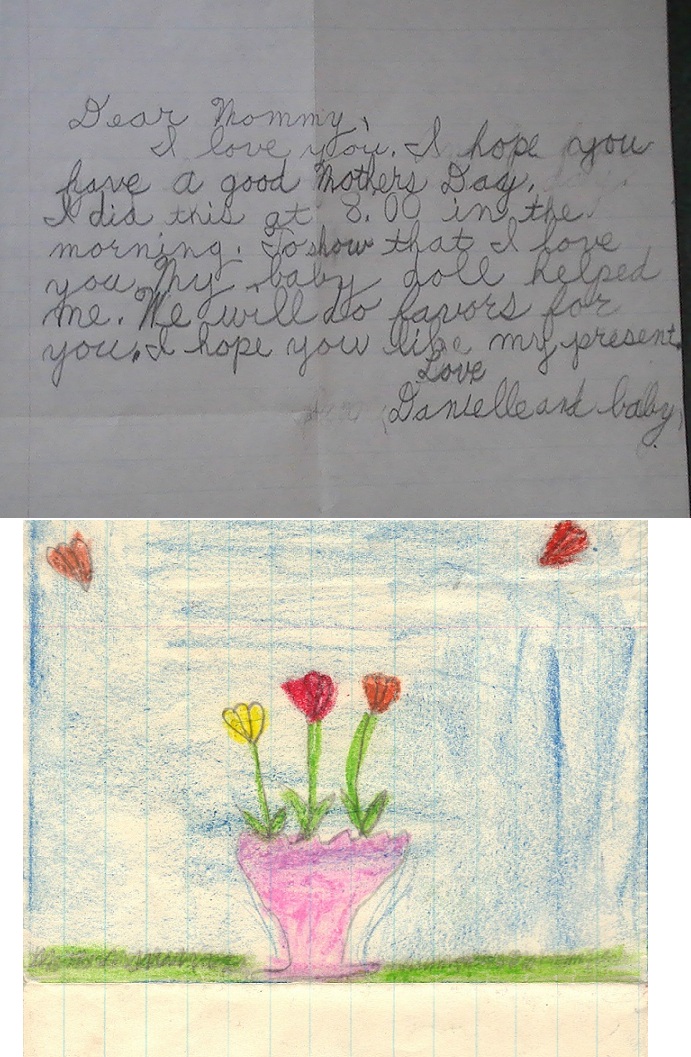 Dear Mommy,
I love you. I hope you
have a good Mothers Day.
I did this at 8.00 in the
morning. To show that I love
you My baby doll helped
me. We will do favors for
you. I hope you like my present.
Love
Danielle and baby